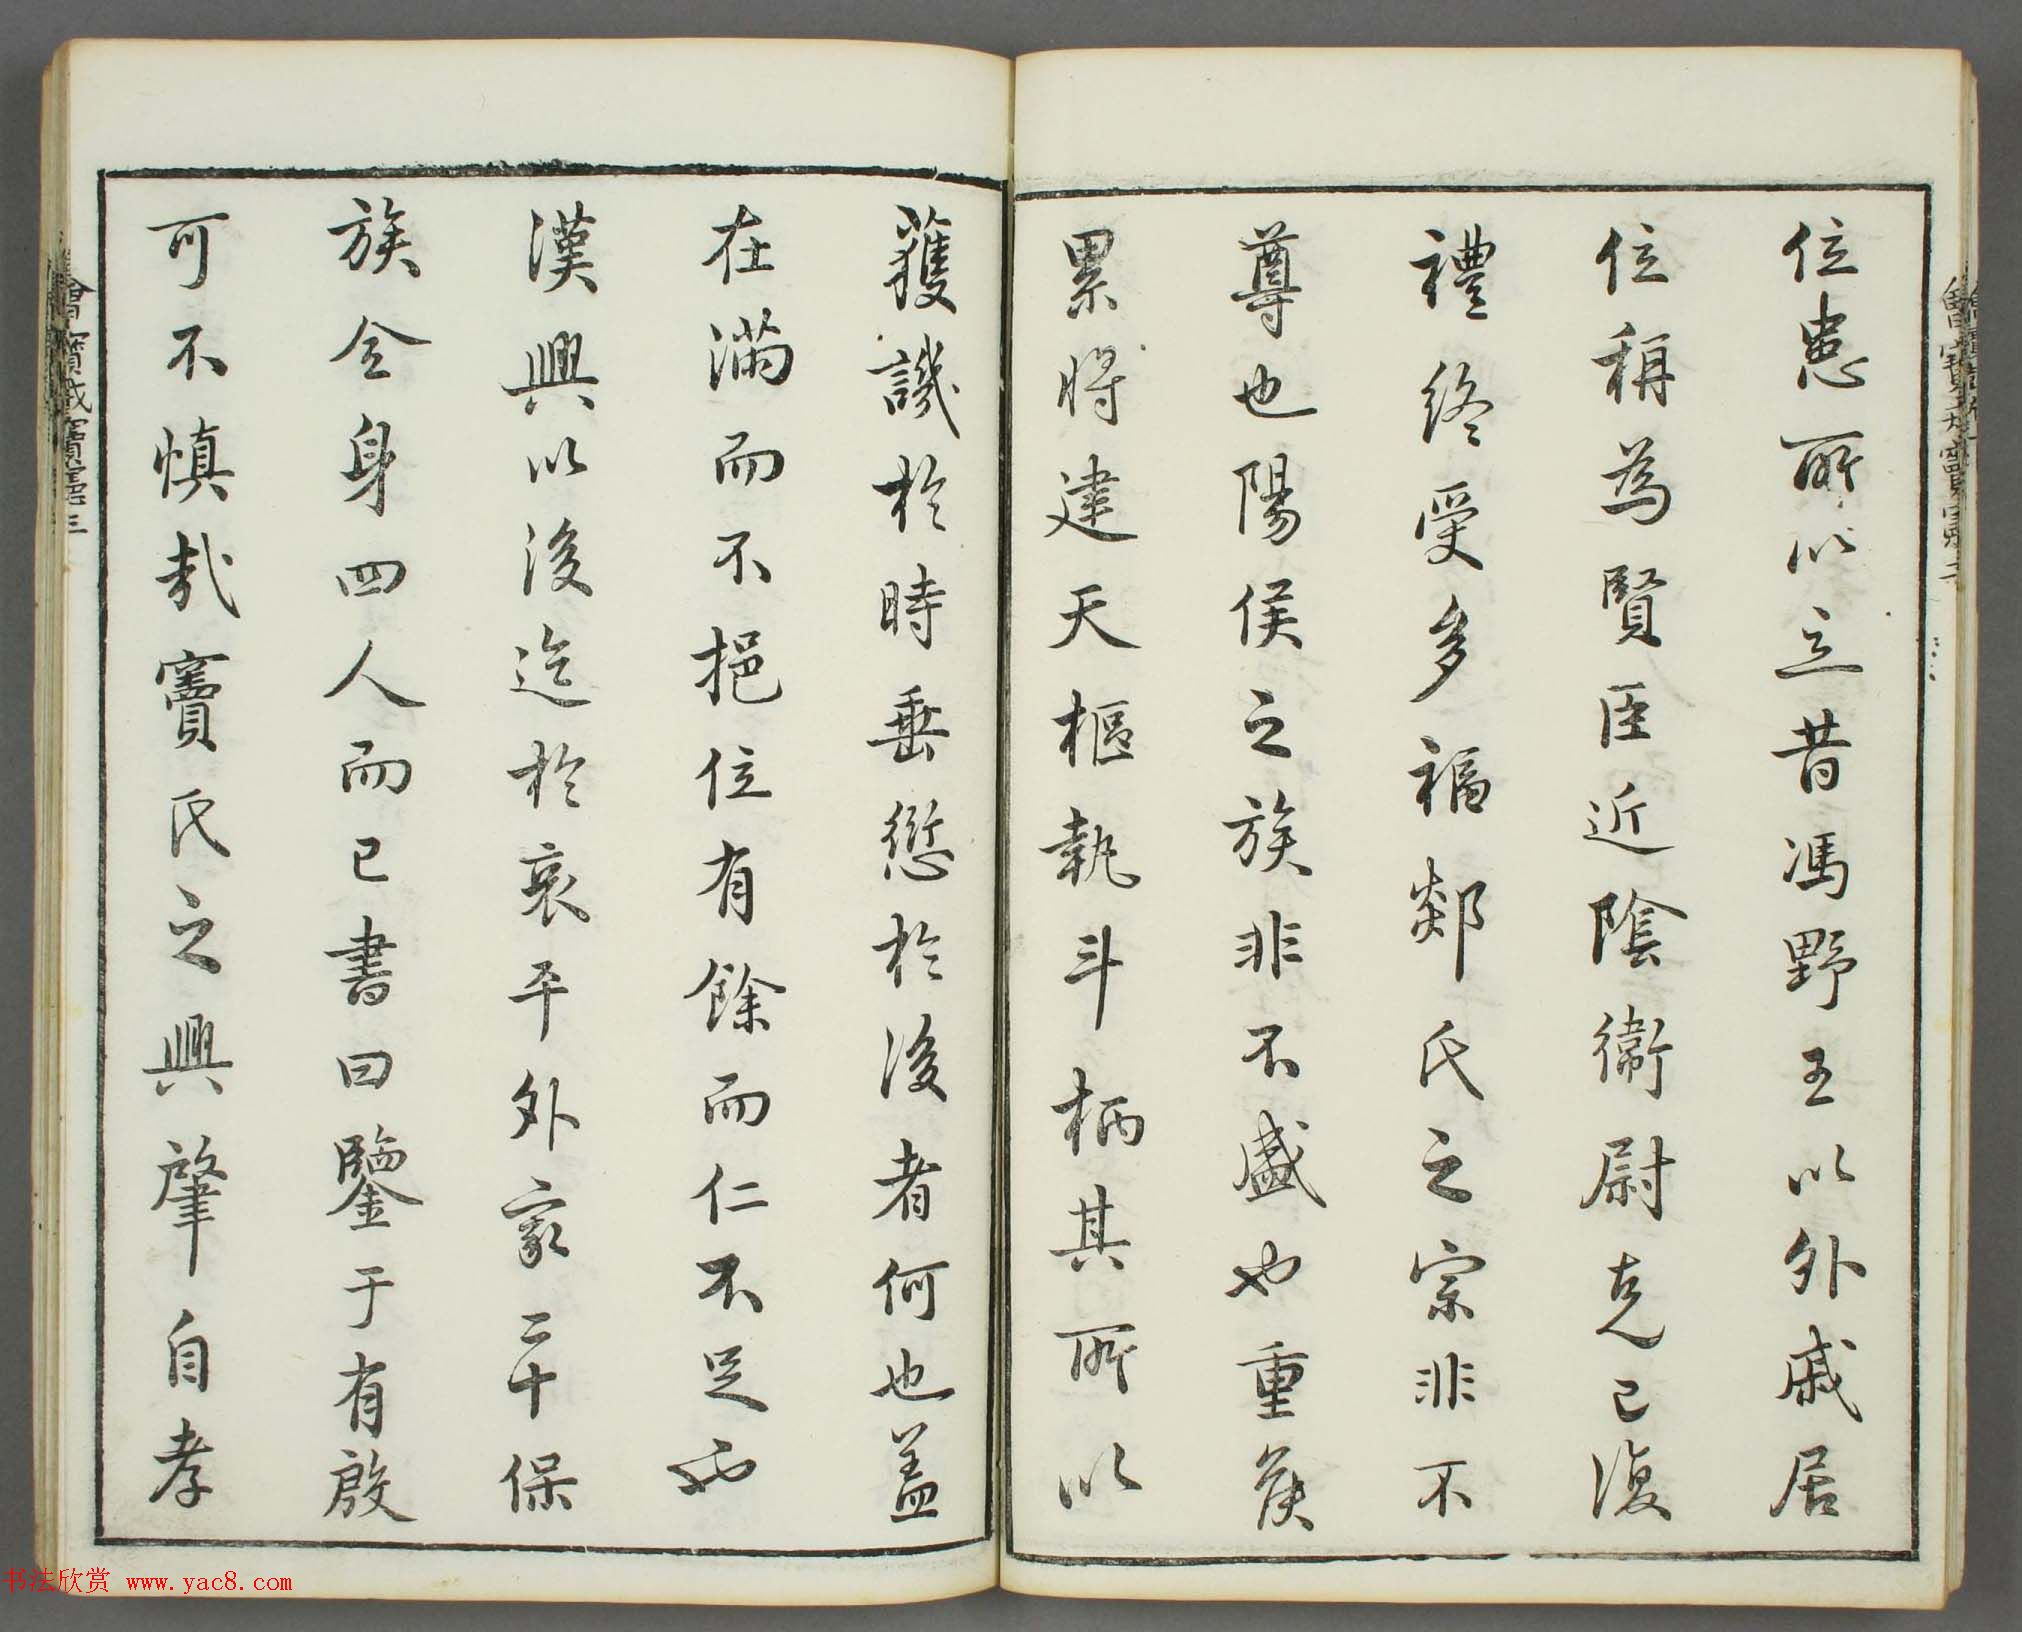 位患所以立昔馮野王以外戚居
位稱為賢臣近陰衛尉克己復
禮終受多福郯氏之宗非不
尊也陽侯之族非不盛也重侯
累將建天樞執斗柄其所以
獲譏於時垂愆於後者何也蓋
在滿而不挹位有餘而仁不足也
漢興以後迄於哀平外家二十保
族全身四人而已書曰鑒于有殷
可不慎哉竇氏之興肇自孝
書法欣赏 www.yac8.com